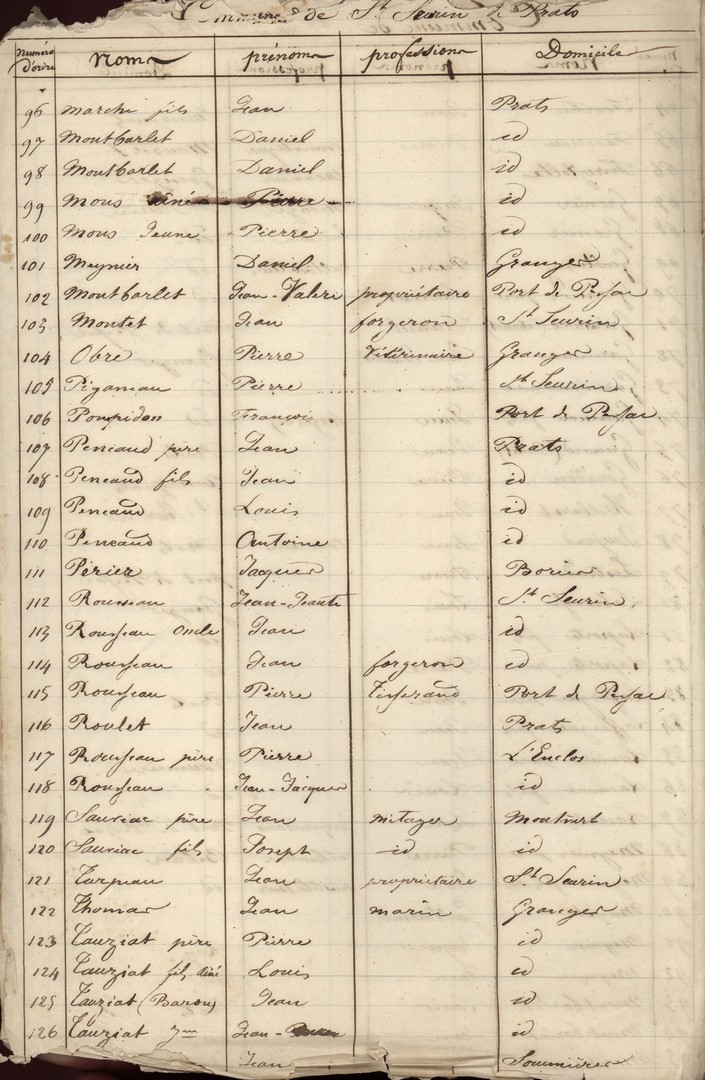 Commune de St Seurin de Prats
numéro d'ordre nom prénom profession Domicile
96 marche fils Jean Prats
97 Montbarlet Daniel id
98 Montbarlet Daniel id
99 Mous ainé Pierre id
100 Mous Jeune Pierre id
101 Meynier Daniel Granger
102 Montbarlet Jean-Valeri propriétaire Port de Pessac
103 Montet Jean forgeron St Seurin
104 Obre Pierre Vétérinaire Granger
105 Pigameau Pierre St Seurin
106 Pompidon François Port de Pessac
107 Peneaud père Jean Prats
108 Peneaud fils Jean id
109 Peneaud Louis id
110 Peneaud Antoine id
111 Périer Jacques Borie
112 Rousseau St Seurin
113 Rousseau Oncle Jean id
114 Rousseau Jean forgeron id
115 Rousseau Pierre Tisserand Port de Pessac
116 Roulet Jean Prats
117 Rousseau père Pierre L'Enclos
118 Rousseau Jean-Jacques id
119 Sauriac père Jean métayer Montvert
120 Sauriac fils Joseph id id
121 Turpeau Jean propriétaire St Seurin
122 Thomas Jean marin Granger
123 Tauziat père Pierre id
124 Tauziat fils ainé Louis id
125 Tauziat (Barou) Jean id
126 Tauziat Jean- id
Jean Soumières